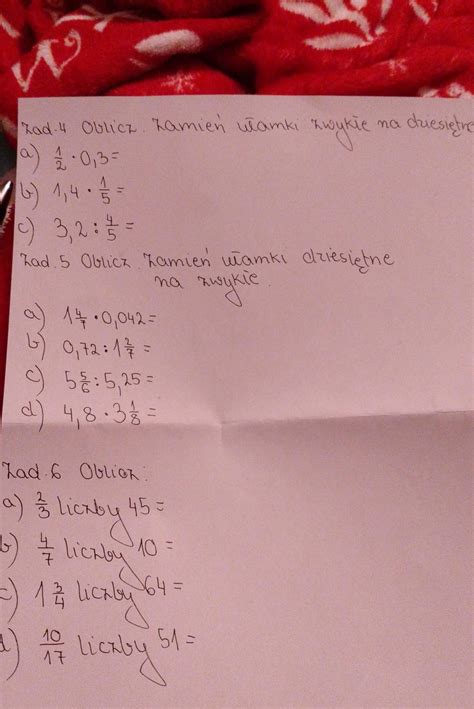 Zad.4 Oblicz. Zamień ułamki zwykłe na dziesiętne
a) 1/2 · 0,3 =
b) 1,4 · 1/5 =
c) 3,2 : 4/5 =
Zad.5 Oblicz. Zamień ułamki dziesiętne
na zwykłe.
a) 1 4/7 · 0,042 =
b) 0,72 : 1 2/7 =
c) 5 5/6 : 5,25 =
d) 4,8 · 3 1/8 =
Zad.6 Oblicz:
a) 2/3 liczby 45 =
b) 4/7 liczby 10 =
c) 1 3/4 liczby 64 =
d) 10/17 liczby 51 =